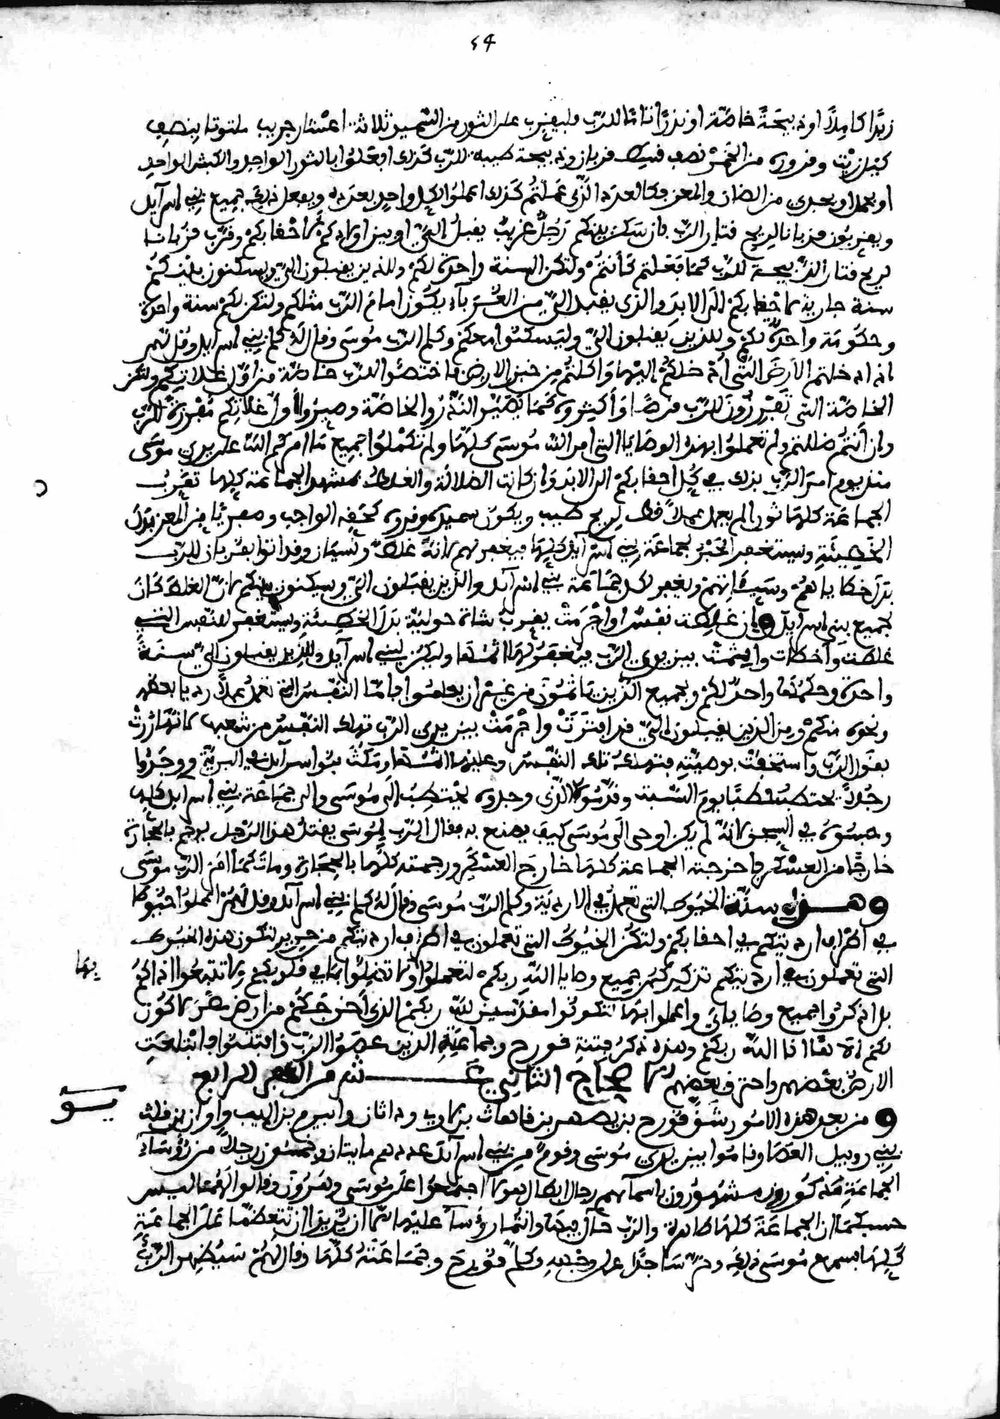 ٥٤
زيدا كاملا او ذبيحة خاصة او نذرا تاما للرب فليقرب على الثور من السميد ثلاثة اعشار جريب ملتوتا بنصف
كيل زيت وفزوده من الخمر نصف قسط قربان وذبيحة طيبه للرب كذلك افعلوا بالثور الواحد والكبش الواحد
او بحمل او بجدي من الضان والمعز وكالعدد الذي عملتم كذلك اعملوا لكل واحد بعدده ويفعل ذلك جميع بني اسرآيل
ويقربون قربانا لريح قتار الرب فان سكن بينكم رجل غريب يقبل الي او بين اولادكم في احقابكم وقرب قربانا
لريح قتار الذبيحة للرب كما فعلتم كانتم ولتكن السنة واحدة لكم وللذين يقبلون الي ويسكنون بينكم
سنة جارية في احقابكم الى الابد والذي يقبل الي من الغرباء يكون امام الرب مثلكم ولتكن لكم سنة واحدة
وحكومة واحدة لكم وللذين يقبلون الي وليسكنوا معكم وكلم الرب موسى وقال له كلم بني اسرايل وقل لهم
اذا دخلتم الارض التي ادخلكم اليها واكلتم من خبز الارض فاختصوا للرب خاصة من اول غلاتكم
الخاصة التي تقررون للرب قرصا واكثروه كما يصير النذر والخاصة وصيروا اول غلاتكم مفروزة للرب
وان انتم ضللتم ولم تعملوا بهذه الوصايا التي امر الله موسى كلها ولم تكملوا جميع ما امركم الله على يدي موسى
منذ يوم امر الرب بذلك في كل احقابكم الى الابد وان كانت الضلالة والغلط بمشهد الجماعة كلها تقرب
الجماعة كلها ثورا لم يعمل عملا قط لريح طيب ويكون سميده وفزوده كحقه الواجب وصفريا من المعز بدل
الخطيئة ويستغفر الحبر لجماعة بني اسرآيل كلها فيغفر لهم لانه غلط ونسيان وقد اتوا بقربان للرب
بدل خطاياهم وسيئاتهم ويغفر لكل جماعة بني اسرآيل والذين يقبلون الي ويسكنون بينكم لان الغلط كان
لجميع بني اسرايل وان غلطت نفس او اجرمت يقرب شاة حولية بدل الخطيئة ويستغفر للنفس التي
غلطت واخطات واثمت بين يدي الرب فيغفر لها اثمها وليكن لبني اسرآيل وللذين يقبلون الي سنة
واحدة وحكمها واحد لكم ولجميع الذين ياثمون من غير ان يعلموا فاما النفس التي تعمل عملا رديا بعظمه
ونحوه منكم ومن الذين يقبلون الي قد افترت واجرمت بين يدي الرب تهلك النفس من شعبها لانها ازرت
بقول الرب واستخفت بوصيته فتهلك تلك النفس وعليها اثمها ومكث بنو اسرآيل في البرية ووجدوا
رجلا يحتطب حطبا يوم السبت وقدموا الذي وجدوه يحتطب الى موسى والى جماعة بني اسرايل كلها
وحبسوه في السجن لانه لم يكن اوحى الى موسى كيف يصنع به فقال الرب لموسى يقتل هذا الرجل يرجم بالحجارة
خارجا من العسكر فاخرجته الجماعة كلها خارج العسكر ورجمته كلها بالحجارة ومات كما امر الرب موسى
وهذه سنة الخيوط التي تعمل في الاردية وكلم الرب موسى وقال له كلم بني اسرآيل وقل لهم اعملوا خيوطا
في اطراف ارديتكم في احقابكم ولتكن الخيوط التي تعملون في اطراف ارديتكم من حرير لتكون هذه الخيوط
التي تعملون في ارديتكم تذكيركم جميع وصايا الله ربكم لتعملوا ولا تضلوا في قلوبكم ولا تتبعوا اذاكم
بل اذكروا جميع وصاياي واعملوا بها لتكونوا مقدسين لله ربكم الذي اخرجكم من ارض مصر لاكون
لكم الاها انا الله ربكم وهذه ذكر فتنة قورح وجماعته الذين عصوا الرب فافتتنوا وابتلعت
الارض بعضهم واحترق بعضهم الاصحاح الثاني عشر من السفر الرابع
و من بعد هذه الامور شق قورح بن يصهر بن قاهات بن لاوي وداثان وابيرم بن اليب واوان بن فلت
بني روبيل العصا وقاموا بين يدي موسى وقوم من بني اسرآيل عددهم مايتان وخمسون رجلا من رؤساء
الجماعة مذكورون مشهورون باسمآيهم رجال ابطال فلما اجتمعوا على موسى وهرون وقالوا لهما اليس
حسبكما ان الجماعة كلها طاهرة والرب حال بينها وانتما رؤسآ عليها فما لكما تريدان ان تتعظما على الجماعة
كلها فسمع موسى ذلك وخر ساجدا على وجهه وكلم قورح وجماعته كلها وقال لهم سيظهر الرب
يها